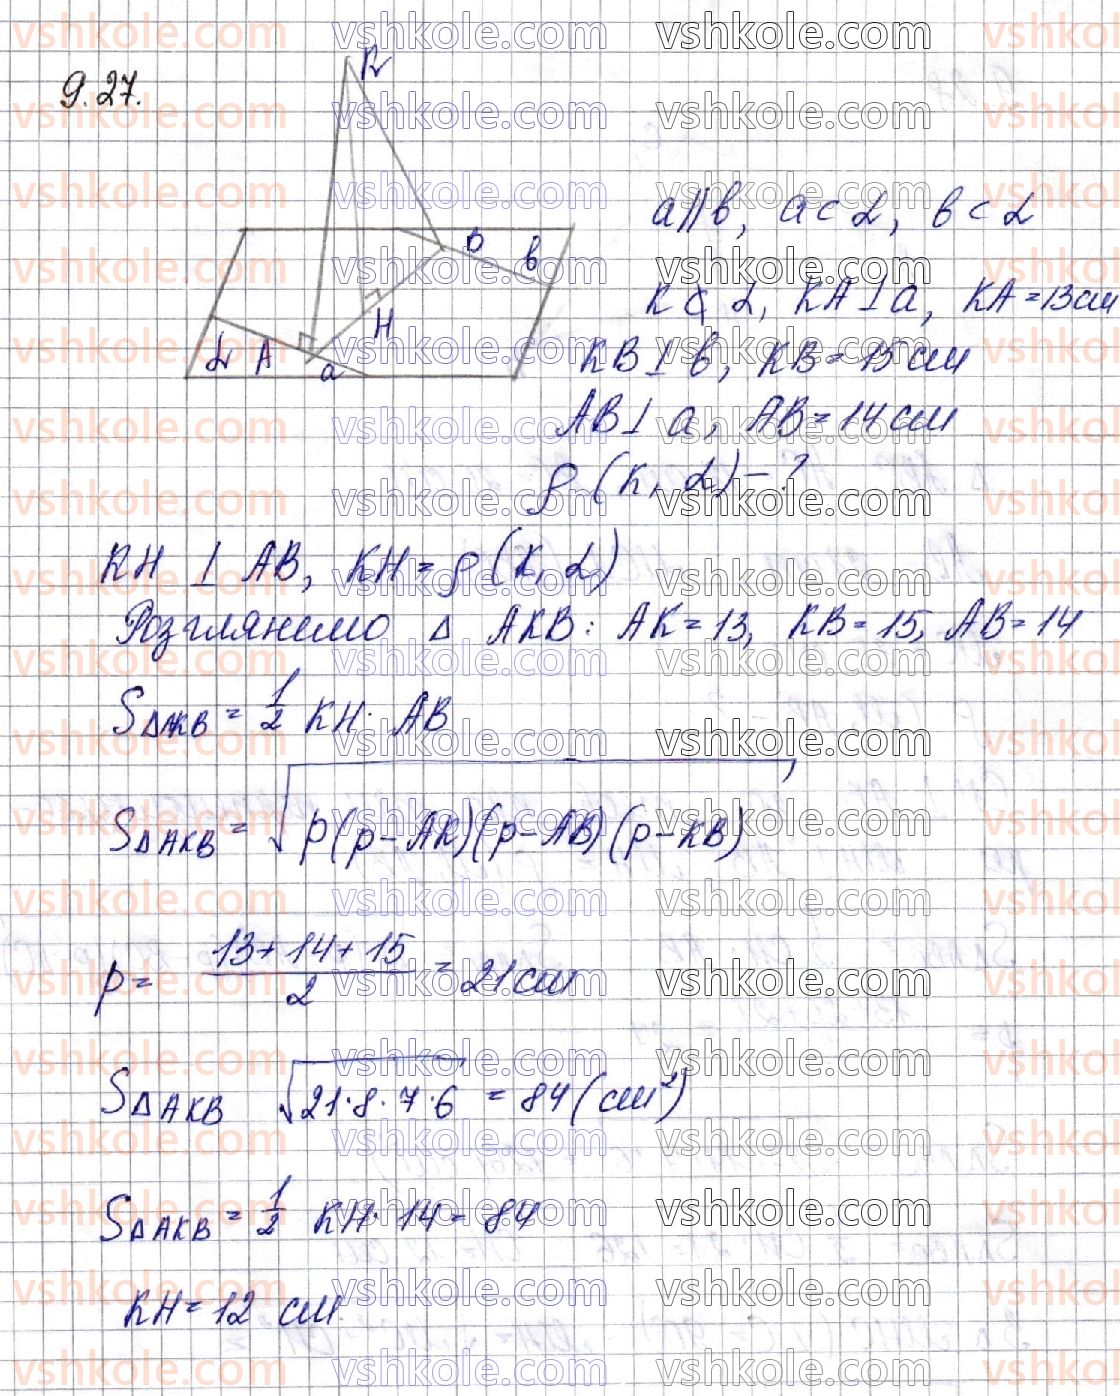 9.27.
K
B
в
H
α A a
a∥в, a⊂α, в⊂α
K⊄α, KA⊥a, KA=13см
KB⊥в, KB=15см
AB⊥a, AB=14см
ρ(K,α)-?
KH ⊥ AB, KH=ρ(K,α)
Розглянемо Δ AKB: AK=13, KB=15, AB=14
SΔAKB = 1/2 KH· AB
SΔAKB = √p(p-AK)(p-AB)(p-KB)
p = (13+14+15)/2 = 21см
SΔAKB √21·8·7·6 = 84(см²)
SΔAKB = 1/2 KH· 14 = 84
KH=12 см.
vshkole.com